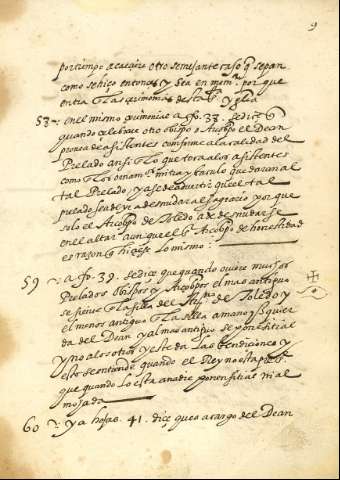 9
por tiempo acaeçiere otro semejante caso q sepan
como se hiço entonces y sea en mem.ª por que
entra las çerimonias desta s.ta ygleª
53 en el mismo çerimonial a fo. 33. se diçe q
quando celebrare otro obispo o Arçobpo el Dean
provea de asistentes conforme a la calidad del
Prelado ansi lo que toca a los asistentes
como los ornam.tos mitra y baculo que daran al
tal Prelado y asse de advertir que el tal
prelado se a de yr a desnudar al sagrario ya que
solo el Arçobpo de Toledo a de desnudarse
en el altar aunque el s.r Arçobpo de
es raçon q hiçiese lo mismo
59 a fo. 39. se diçe que quando oviere muchos
Prelados obispos y Arçobpos el mas antiguo
se sirve la silla del Arçobpo de Toledo y
el menos antiguo la silla a mano yzquier
da del Dean y al mas antiguo se pone sitial
y no a los otros y este da las bendiciones y
esto se entiende quando el Rey no esta presete
que quando lo esta a nadie ponen sitial ni al
mojada
60 y a hojas. 41. diçe que a cargo del Dean